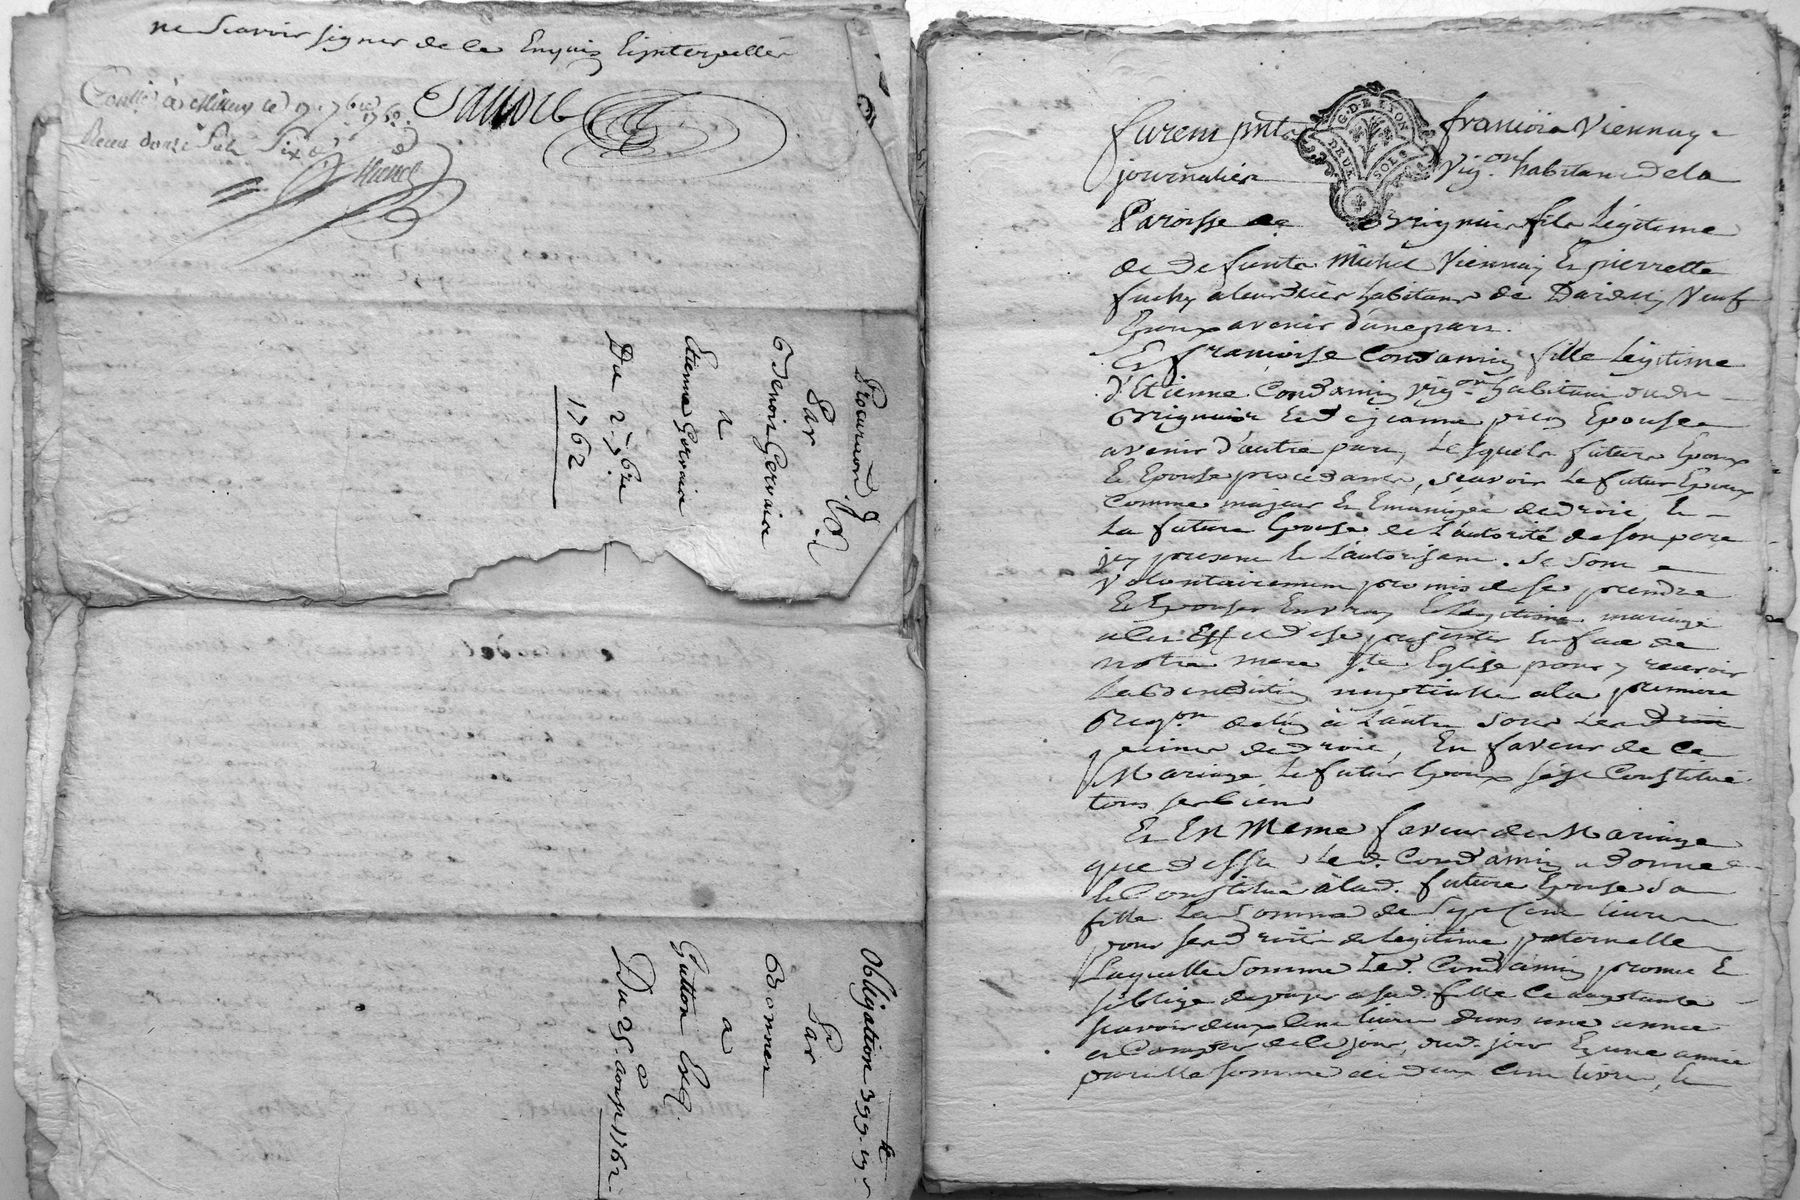 ne Scavoir signer de ce Enquis Et interpellé
Conllé à Millery le 7bre 1762.
Receu douze Sols Six d
Procuration
Par
Benoit Gervaise
a
Etienne Gervaise
Du 2 7bre
1762
Obligation 399
Par
Bonner
a
Gutton
Du 25 aoust 1762
furent pnts francois Viennay
G·D·E LYON
DEUX SOLS
journalier Vig.on habitant de la
Paroisse de Grignais fils Légitime
de defunts Michel Viennay Et pierrette
habitans de Dardilly Veuf
Epoux avenir d'une part.
Et francoise Condamin fille Legitime
d'Etienne Condamin vig.on habitant dudit
Grignais Et de jeanne Epouse
avenir d'autre part, Lesquels futurs Epoux
Et Epouse procedants, scavoir Le futur Epoux
Comme majeur Et Emancipé de droit, Et
La future Epouse de L'autorité de son pere
icy present Et L'autorisant. Se Sont
volontairement promis de se prendre
Et Epouser En vray Et Legitime mariage
a ces Effet de se presenter En face de
notre mere Ste Eglise pour y recevoir
La Benediction nuptialle a la premiere
Requon de L'un à L'autre sous Les droits
peines de droit, En faveur de Ce
Mariage Le futur Epoux s'est Constitué
tous ses biens
Et En Meme faveur de Mariage
que dessus Led. Condamin a donné
Et Constitué à lad. future Epouse sa
fille La Somme de Cent livres
pour ses droits de Legitime paternelle
Laquelle Somme Led. Condamin promet Et
s'oblige de payer a sad. fille Ce acceptante
scavoir deux Cent livres dans une année
a Compter de Ce jour, dud. jour En une année
pareille somme de deux Cent livres, Et